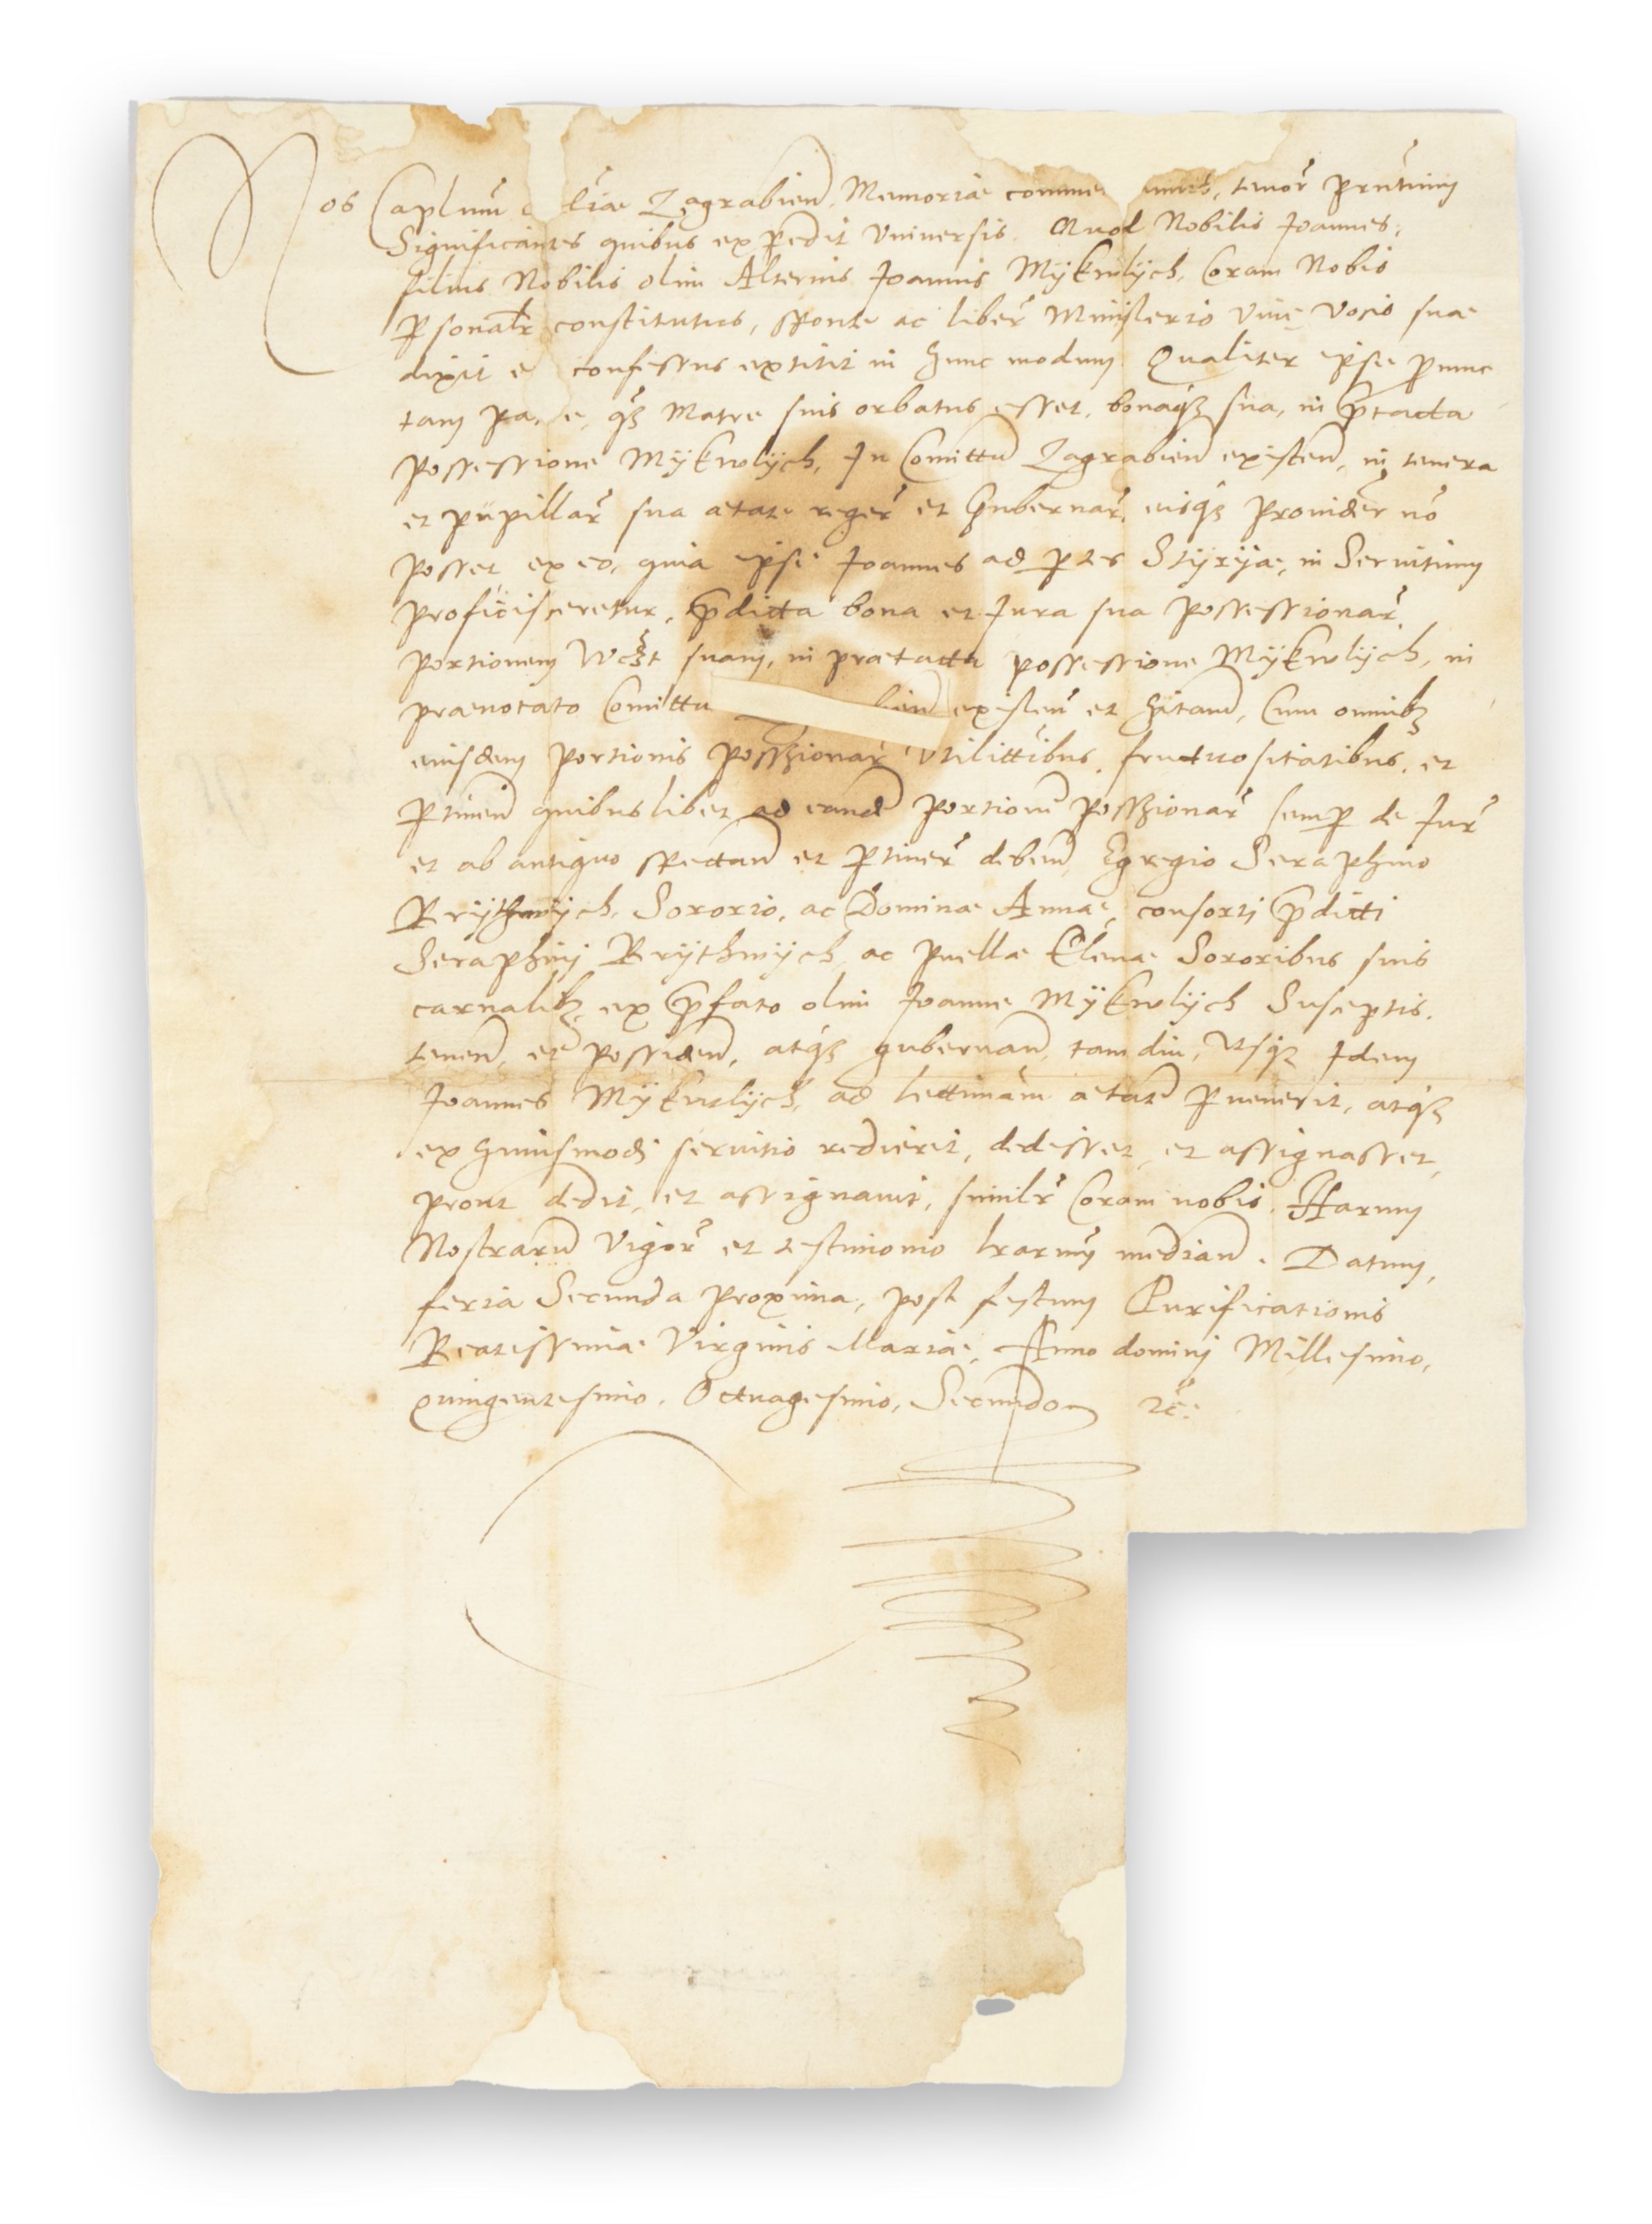 Nos Caplum e liae Zagrabien Memoriae comme amus, tenor prntium
Significantes quibus expedit Vniuersis. Quod Nobilis Joannes,
filius Nobilis olim Alterius Joannis Mÿkwlÿch, Coram Nobis
psonalr constitutus, sponte ac liber Ministerio viue vocis suae
dixit e confessus extitit in hunc modum. Qualiter ipse pnunc
tam pa, e, qz Matre suis orbatus esset, bonaqz sua, in ptacta
possessione Mÿkwlÿch, In Comittu Zagrabien existen, in tenera
et pupillar sua aetate reger et Gubernar, eisqz prouider no
posset, ex eo, quia ipse Joannes ad ptes Stÿrÿae, in Seruitium
proficisceretur, pdicta bona et Jura sua possessionar,
portionem wczt suam, in praetacta possessione Mÿkwlÿch, in
praenotato Comittu bien existen et hitam, Cum omnibz
eiusdem portionis posszionar vtilittibus, fructuositatibus, et
ptinen quibuslibet ad eande portione posszionar semp de Jur
et ab antiquo spectan et ptiner deben, Egregio Seraphino
Brÿthwÿch, Sororio, ac Dominae Annae, consorti pdicti
Seraphinj Brÿthwÿch, ac puellae Elenae Sororibus suis
carnalibz, ex pfato olim Joanne Mÿkwlÿch Susceptis,
tenen, et possiden, atqz gubernan, tam diu, vsqz Idem
Joannes Mÿkwlÿch, ad lectimam aetate puenerit, atqz
ex huiusmodi seruitio redierit, dedisset, et assignasset,
prout dedit, et assignauit, similr Coram nobis. Harum
Nostraru vigor et testimonio lrarum median. Datum,
feria Secunda proxima, post festum Purificationis
Beatissimae Virginis Mariae, Anno dominj Millesimo,
quingentesimo, Octuagesimo, Secundo etc: